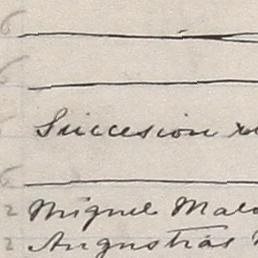 6
6
Succesion
6
2 Miguel
2 Augustias